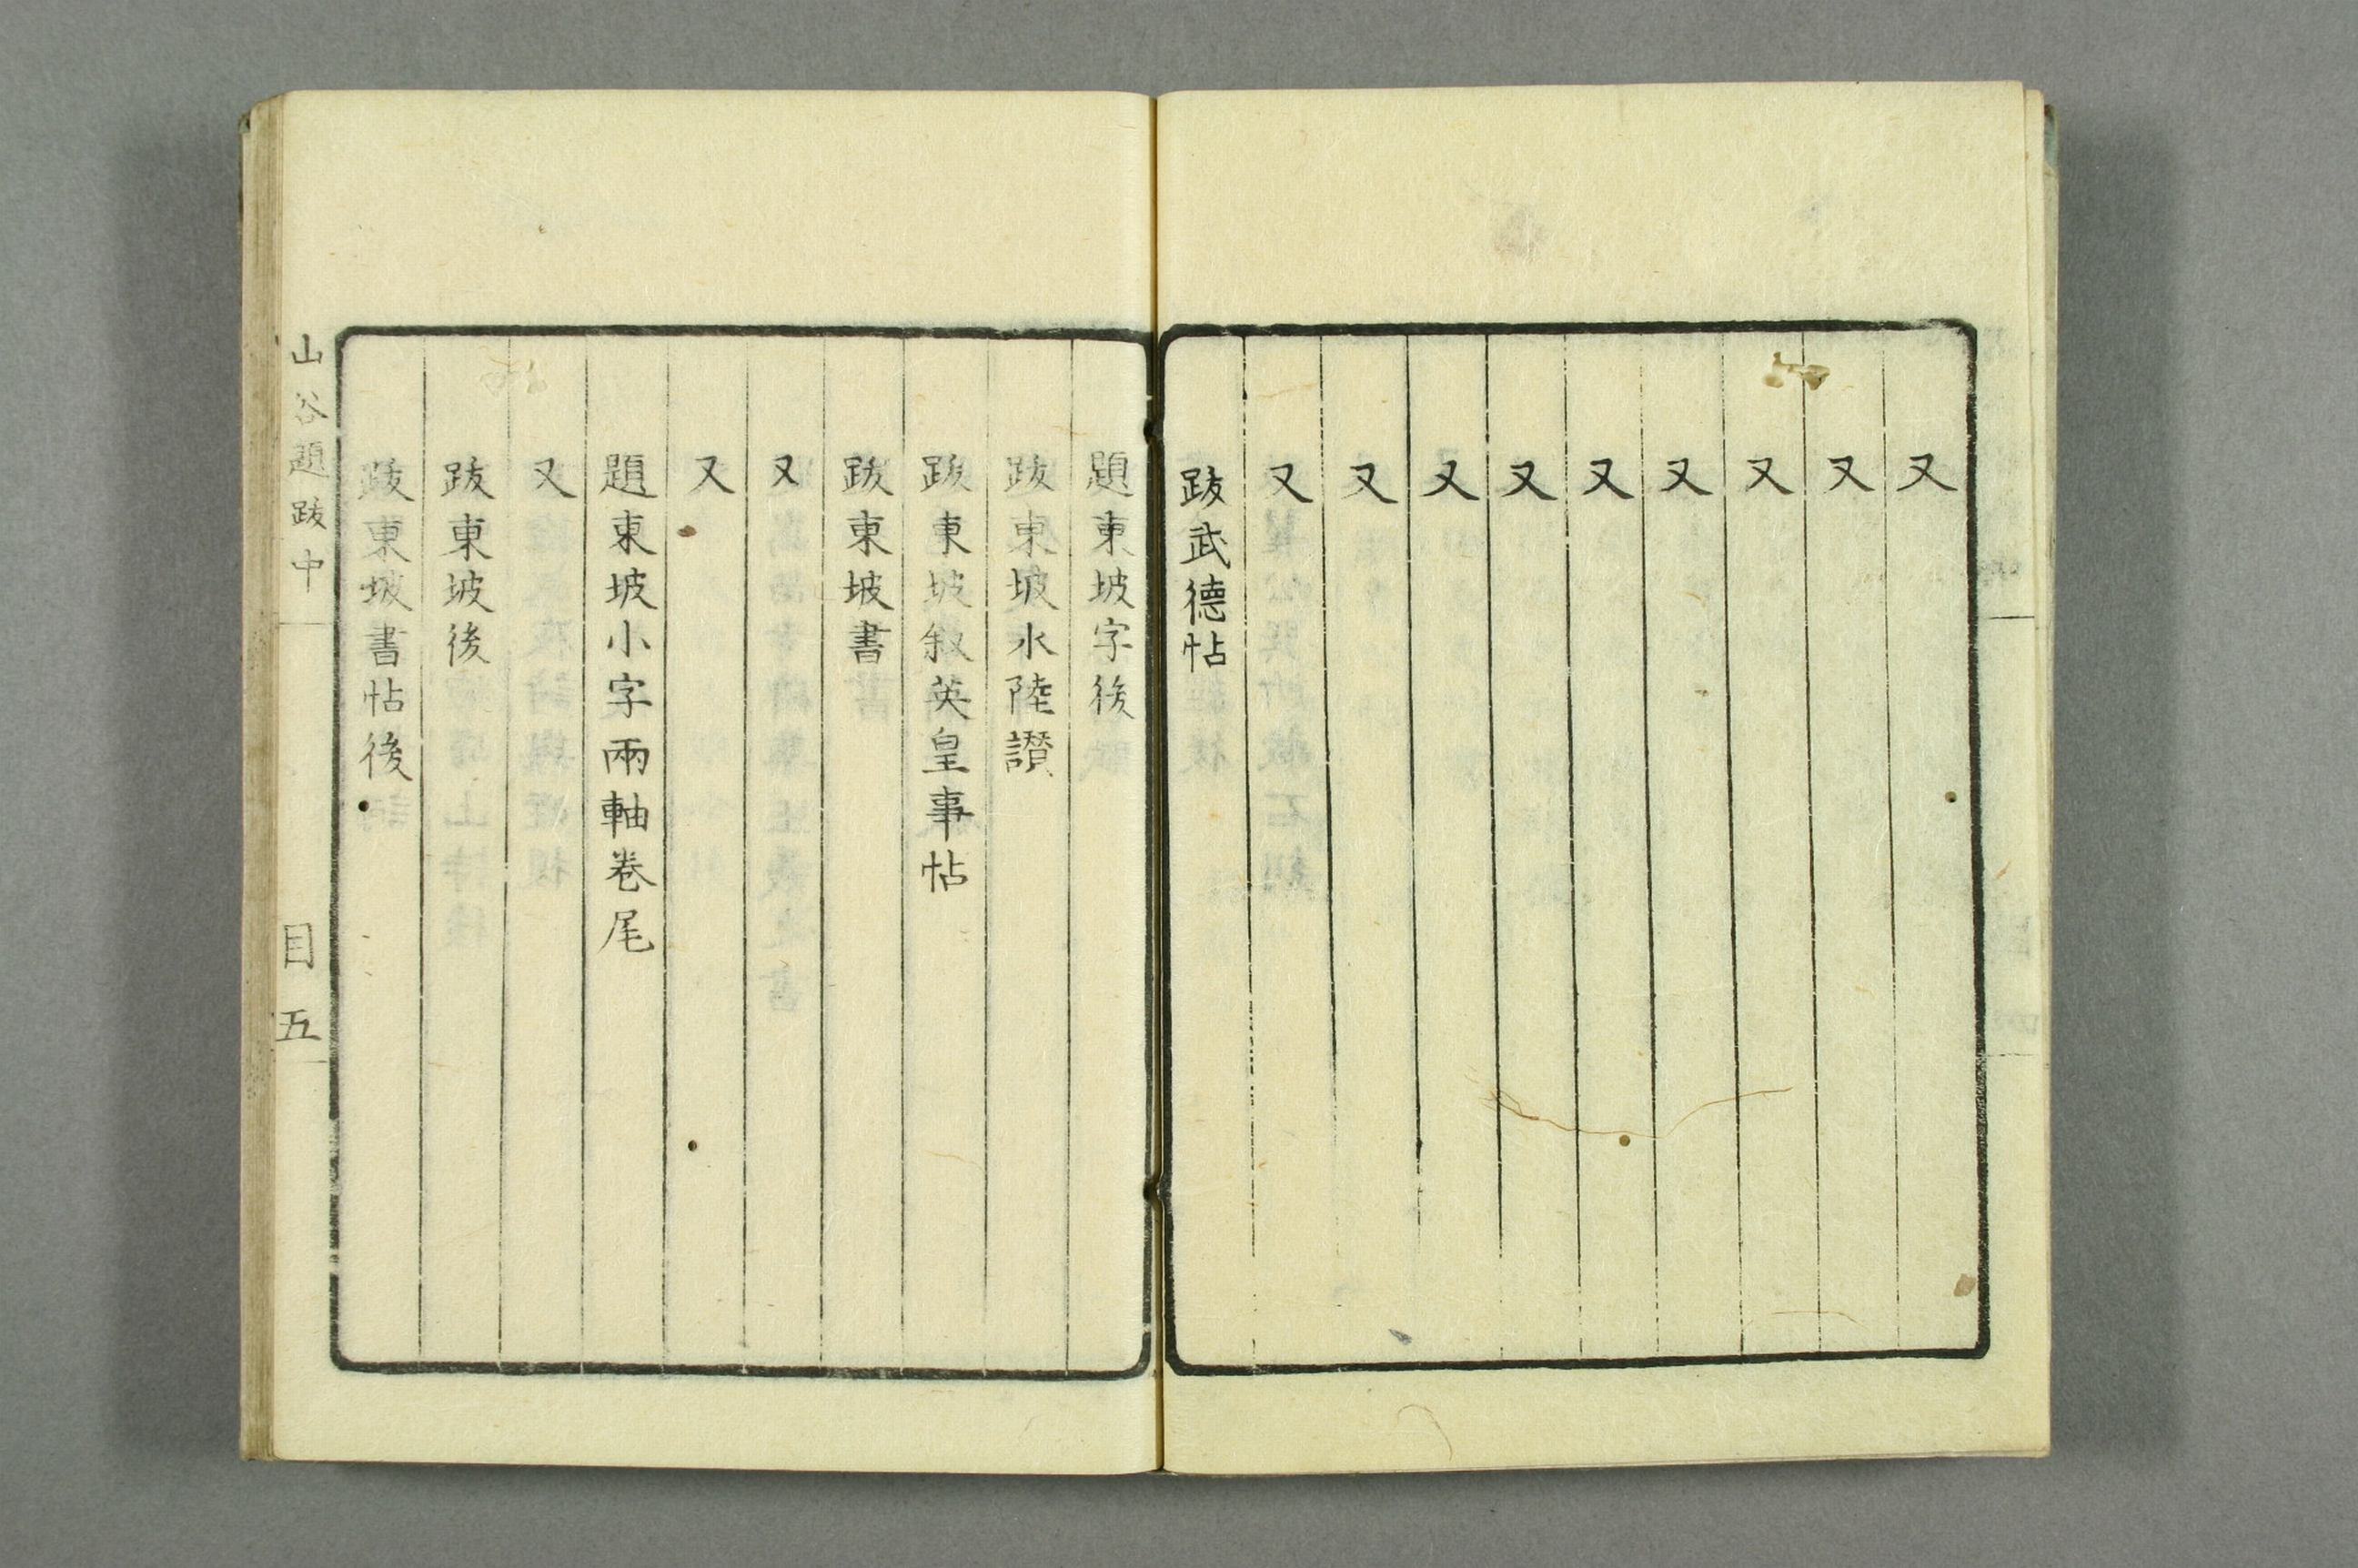 又
又
又
又
又
又
又
又
又
跋武德帖
題東坡字後
跋東坡水陸讃
跋東坡叙英皇事帖
跋東坡書
又
又
題東坡小字兩軸卷尾
又
跋東坡後
跋東坡書帖後
山谷題跋中
目五